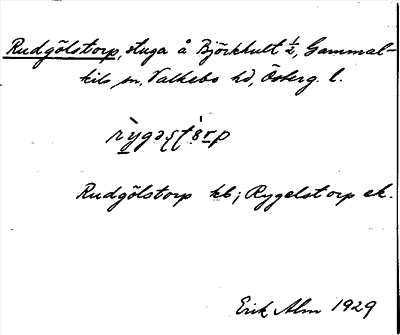 Rudgölstorp, stuga å Björkhult ½, Gammal-
kils sn, Valkebo hd, Österg. l.
Rudgölstorp kb; Rygelstorp ek.
Erik Alm 1929